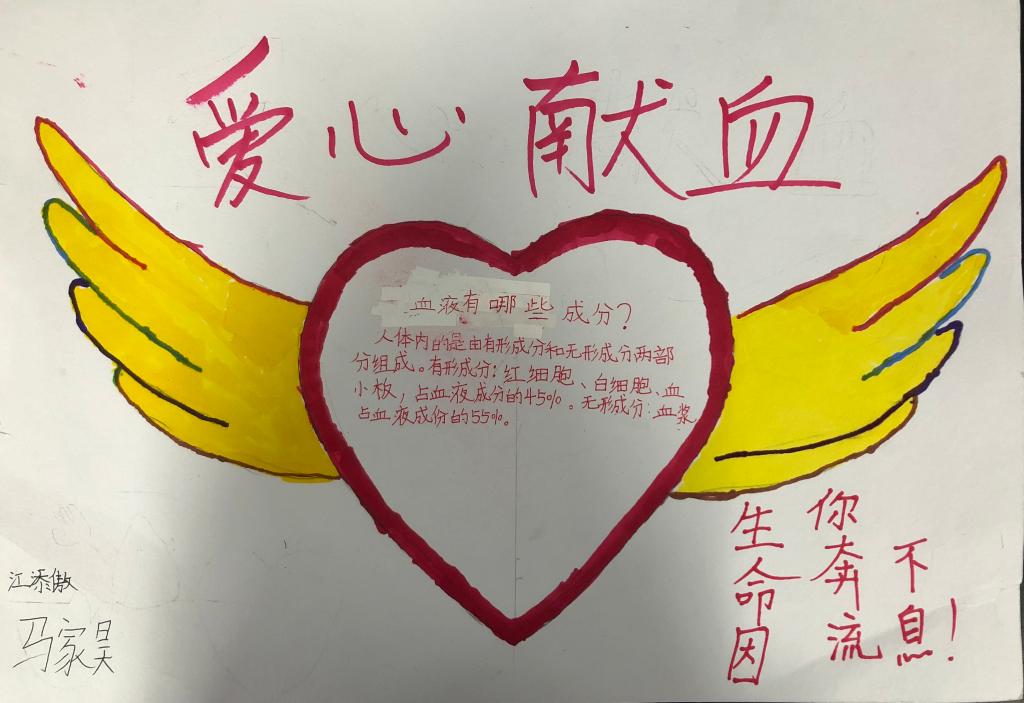 爱心献血
血液有哪些成分?
人体内的是由有形成分和无形成分两部
分组成。有形成分:红细胞、白细胞、血
小板,占血液成分的45%。无形成分:血浆
占血液成份的55%。
生命因
你奔流
不息!
江添傲
马家昊